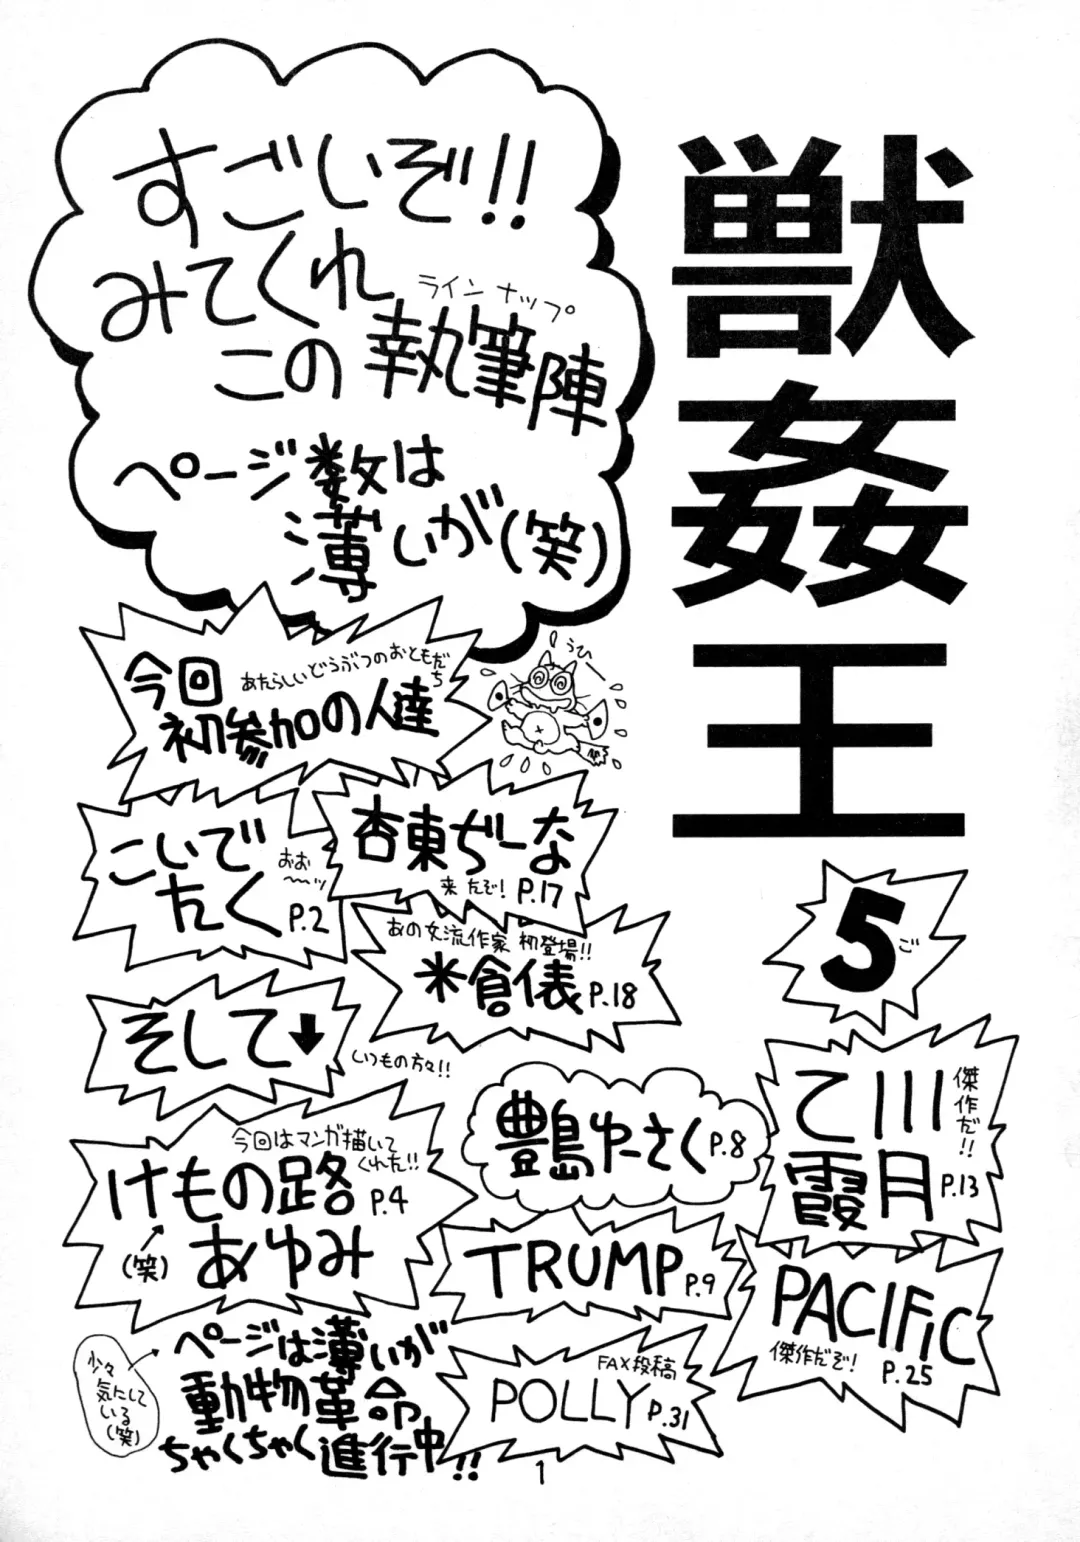 獣姦王
5
ご
すごいぞ!!
みてくれ
この執筆陣
ラインナップ
ページ数は
薄いが(笑)
うひー
今回
あたらしいどうぶつのおともだち
初参加の人達
こいで
たく
おお〜ッ
P.2
杏東ぢーな
来たぞ! P.17
あの女流作家 初登場!!
米倉俵 P.18
そして↓
いつもの方々!!
今回はマンガ描いて
くれた!!
けもの路
P.4
(笑)
あゆみ
豊島ゆーさく P.8
乙川
霞月 P.13
傑作だ!!
TRUMP P.9
PACIFIC
傑作だぞ!
P.25
FAX投稿
POLLY P.31
ページは薄いが
動物革命
ちゃくちゃく進行中!!
少々
気にして
いる
(笑)
1